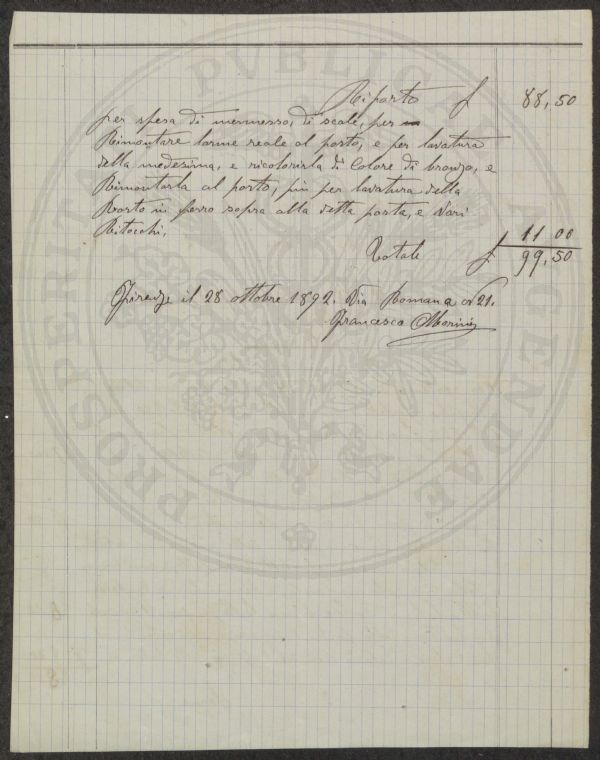 Riporto £ 88,50
per spesa di mennesso, di scale, per
Rimontare larme reale al posto, e per lavatura
della medesima, e ricolorirla di Colore di bronzo, e
Rimontarla al posto, più per lavatura della
Rosto in ferro sopra alla detta porta, e Vari
Ritocchi, £ 11 00
Totale £ 99,50
Firenze il 28 ottobre 1892. Via Romana N 21.
Francesco Morini
PROSPERITATI PUBLICAE AUGENDAE